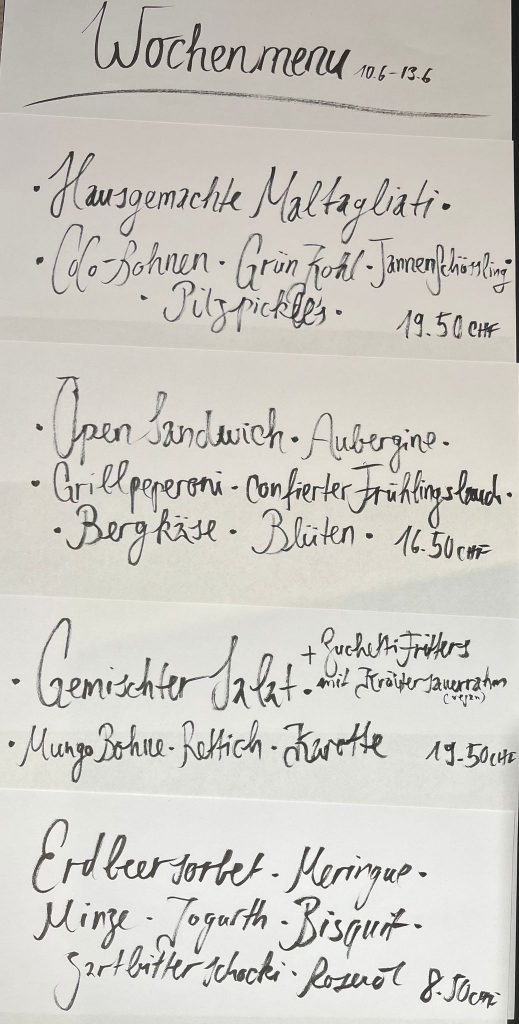 Wochenmenu 10.6-13.6
• Hausgemachte Maltagliati •
• CoCo-Bohnen • Grün Kohl • Tannenschössling •
• Pilzpickles •
19.50 CHF
• Open Sandwich • Aubergine •
• Grillpeperoni • confierter Frühlingslauch •
• Bergkäse • Blüten • 16.50 CHF
• Gemischter Salat •
+ Zuchetti Fritters
mit Kräutersauerrahm
(vegan)
• Mungo Bohne • Rettich • Karotte 19.50 CHF
Erdbeersorbet • Meringue •
Minze • Jogurth • Bisquit •
Zartbitter Schocki • Rosenöl 8.50 CHF